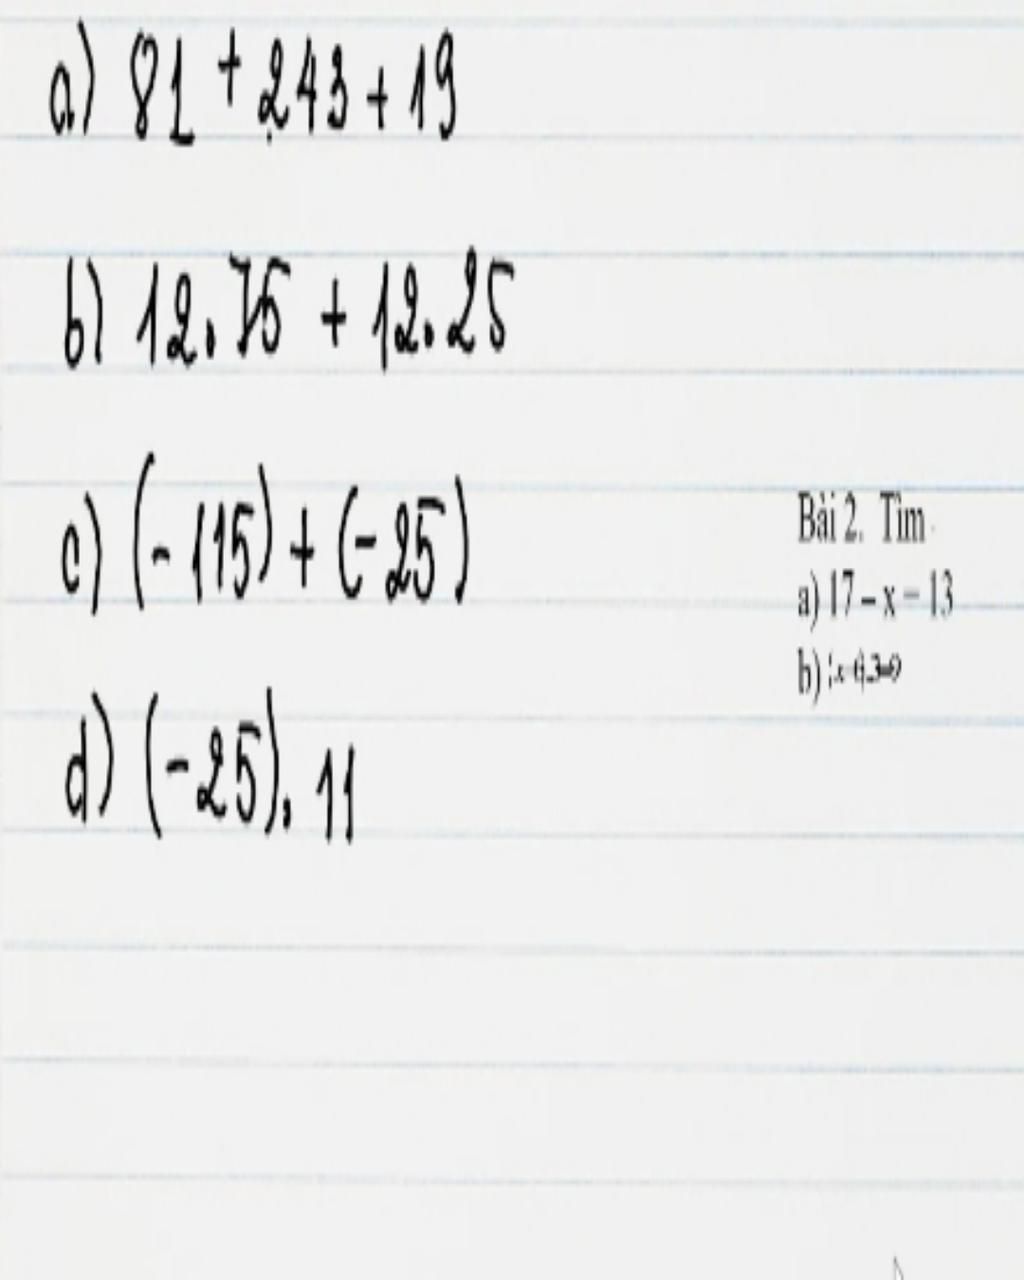 a) 81 + 243 + 19
b) 12.75 + 12.25
c) (-115) + (-25)
d) (-25). 11
Bài 2. Tìm
a) 17 – x = 13
b)